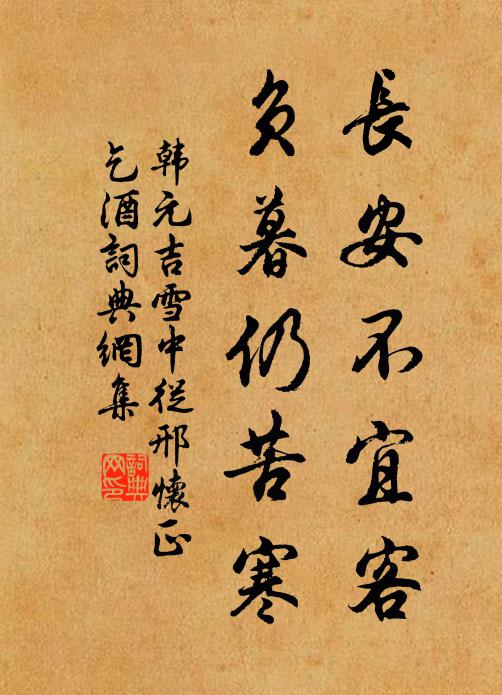 長安不宜客
暮仍苦寒
韩元吉雪中從邢懷正
乞酒詞典網集
詞典網印